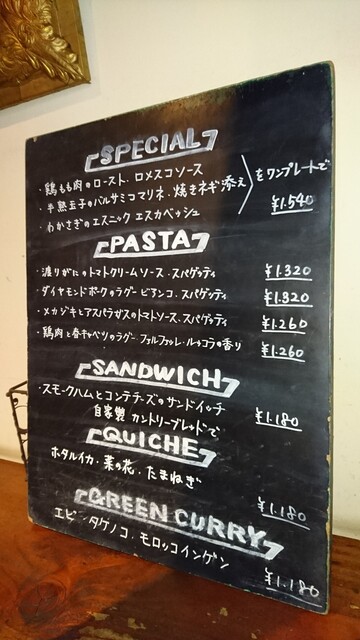 SPECIAL
・鶏もも肉のロースト・ロメスコソース
・半熟玉子のバルサミコマリネ・焼きネギ添え
・わかさぎのエスニック エスカベッシュ
をワンプレートで
¥1.540
PASTA
・渡りがにのトマトクリームソース・スパゲッティ ¥1.320
・ダイヤモンドポークのラグー・ビアンコ・スパゲッティ ¥1.320
・メカジキとアスパラガスのトマトソース・スパゲッティ ¥1.260
・鶏肉と春キャベツのラグー・ファルファッレ・ルッコラの香り ¥1.260
SANDWICH
・スモークハムとコンテチーズのサンドイッチ
自家製 カントリーブレッドで ¥1.180
QUICHE
ホタルイカ・菜の花・たまねぎ
¥1.180
GREEN CURRY
エビ・タケノコ・モロッコインゲン
¥1.180